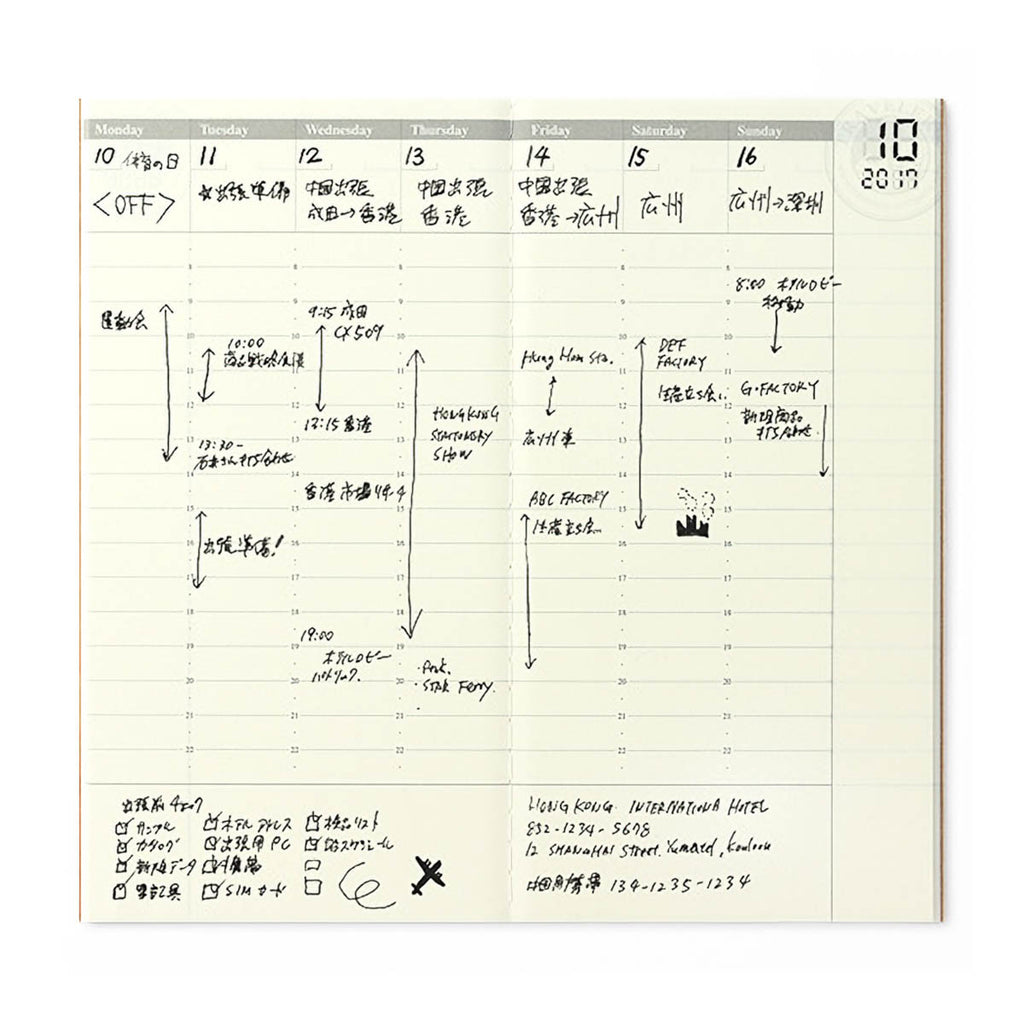 Monday
Tuesday
Wednesday
Thursday
Friday
Saturday
Sunday
10
2017
10 体育の日
11
12
13
14
15
16
<OFF>
出張準備
中国出張
成田→香港
中国出張
香港
中国出張
香港→広州
広州
広州→深圳
8
9
10
11
12
13
14
15
16
17
18
19
20
21
22
運動会
10:00
商品戦略会議
13:30-
打ち合わせ
出張準備!
9:15 成田
CX509
13:15 香港
香港市場リサーチ
19:00
ホテルロビー
パトリック
HONG KONG
STATIONERY
SHOW
・STAR Ferry.
Hung Hom Sta.
広州東
ABC FACTORY
生産立ち会い
DEF
FACTORY
生産立ち会い
8:00 ホテルロビー
移動
G・FACTORY
新規商品
打ち合わせ
出張前チェック
サンプル
カタログ
新規データ
筆記具
ホテルアドレス
出張用PC
携帯
SIMカード
検品リスト
スケジュール
HONG KONG INTERNATIONAL HOTEL
852-1234-5678
12 SHANGHAI Street.
中国用携帯 134-1235-1234